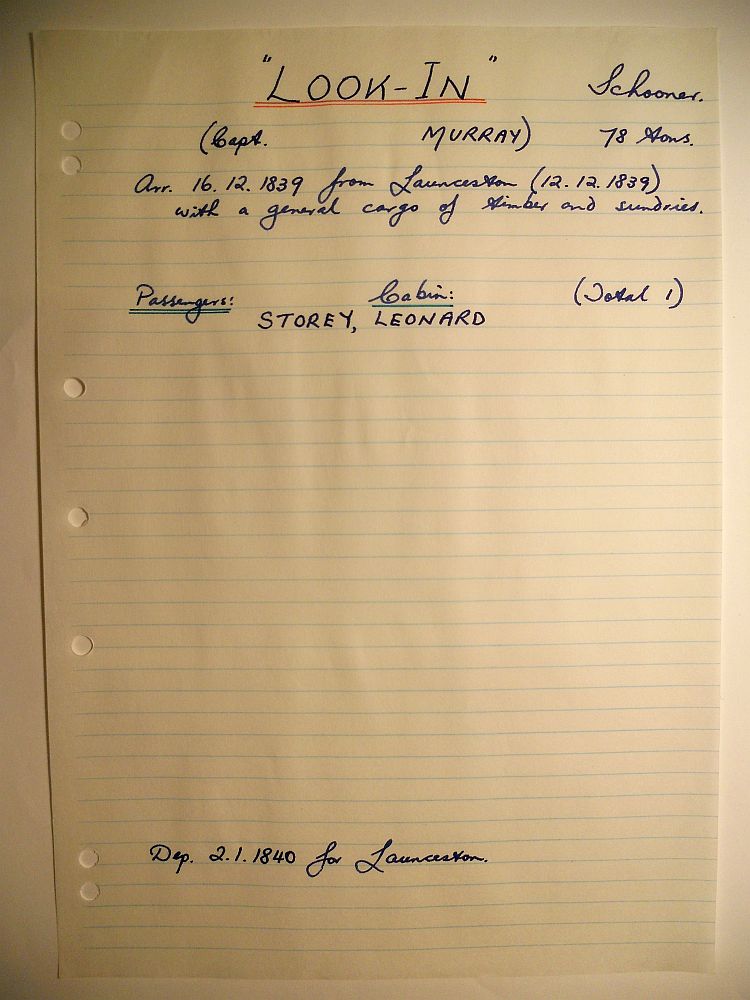 "LOOK-IN" Schooner.
(Capt. MURRAY) 78 tons.
Arr. 16.12.1839 from Launceston (12.12.1839)
with a general cargo of timber and sundries.
Passengers: Cabin: (Total 1)
STOREY, LEONARD
Dep. 2.1.1840 for Launceston.